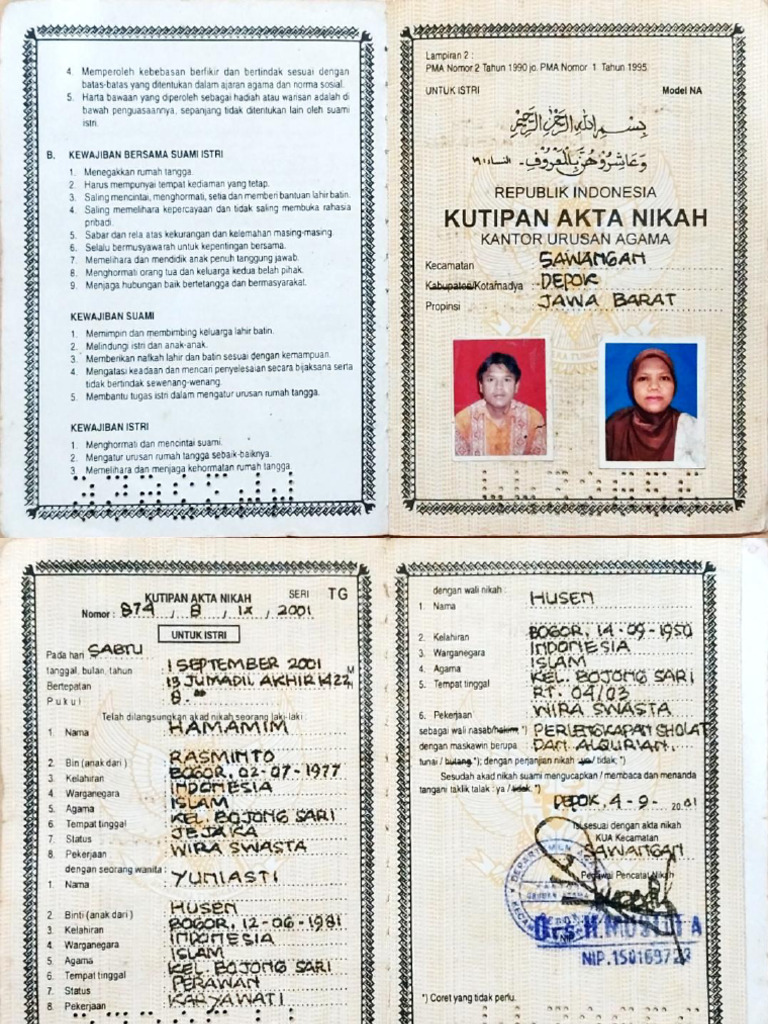 4. Memperoleh kebebasan berfikir dan bertindak sesuai dengan
batas-batas yang ditentukan dalam ajaran agama dan norma sosial.
5. Harta bawaan yang diperoleh sebagai hadiah atau warisan adalah di
bawah penguasaannya, sepanjang tidak ditentukan lain oleh suami
istri.
B. KEWAJIBAN BERSAMA SUAMI ISTRI
1. Menegakkan rumah tangga.
2. Harus mempunyai tempat kediaman yang tetap.
3. Saling mencintai, menghormati, setia dan memberi bantuan lahir batin.
4. Saling memelihara kepercayaan dan tidak saling membuka rahasia
pribadi.
5. Sabar dan rela atas kekurangan dan kelemahan masing-masing.
6. Selalu bermusyawarah untuk kepentingan bersama.
7. Memelihara dan mendidik anak penuh tanggung jawab.
8. Menghormati orang tua dan keluarga kedua belah pihak.
9. Menjaga hubungan baik bertetangga dan bermasyarakat.
KEWAJIBAN SUAMI
1. Memimpin dan membimbing keluarga lahir batin.
2. Melindungi istri dan anak-anak.
3. Memberikan nafkah lahir dan batin sesuai dengan kemampuan.
4. Mengatasi keadaan dan mencari penyelesaian secara bijaksana serta
tidak bertindak sewenang-wenang.
5. Membantu tugas istri dalam mengatur urusan rumah tangga.
KEWAJIBAN ISTRI
1. Menghormati dan mencintai suami.
2. Mengatur urusan rumah tangga sebaik-baiknya.
3. Memelihara dan menjaga kehormatan rumah tangga.
Lampiran 2 :
PMA Nomor 2 Tahun 1990 jo. PMA Nomor 1 Tahun 1995
UNTUK ISTRI Model NA
بسم الله الرحمن الرحيم
وعاشروهن بالمعروف. النساء: ١٩
REPUBLIK INDONESIA
KUTIPAN AKTA NIKAH
KANTOR URUSAN AGAMA
Kecamatan SAWANGAN
Kabupaten/Kotamadya DEPOK
Propinsi JAWA BARAT
KUTIPAN AKTA NIKAH SERI TG
Nomor : 874 , 8 , IX , 2001
UNTUK ISTRI
Pada hari SABTU
tanggal, bulan, tahun 1 SEPTEMBER 2001 M
Bertepatan 13 JUMADIL AKHIR 1422 H
Pukul 8.00
Telah dilangsungkan akad nikah seorang laki-laki :
1. Nama HAMAMIM
2. Bin (anak dari) RASMINTO
3. Kelahiran BOGOR, 02-07-1977
4. Warganegara INDONESIA
5. Agama ISLAM
6. Tempat tinggal KEL. BOJONG SARI
7. Status JEJAKA
8. Pekerjaan WIRA SWASTA
dengan seorang wanita :
1. Nama YUNIASTI
2. Binti (anak dari) HUSEN
3. Kelahiran BOGOR, 12-06-1981
4. Warganegara INDONESIA
5. Agama ISLAM
6. Tempat tinggal KEL. BOJONG SARI
7. Status PERAWAN
8. Pekerjaan KARYAWATI
dengan wali nikah :
1. Nama HUSEN
2. Kelahiran BOGOR, 14-09-1950
3. Warganegara INDONESIA
4. Agama ISLAM
5. Tempat tinggal KEL. BOJONG SARI
RT. 04/03
6. Pekerjaan WIRA SWASTA
sebagai wali nasab/hakim *) PERLENGKAPAN SHOLAT
dengan maskawin berupa DAN ALQURIAN.
tunai / hutang *); dengan perjanjian nikah ya / tidak; *)
Sesudah akad nikah suami mengucapkan / membaca dan menanda
tangani taklik talak : ya / tidak. *)
DEPOK, 4-9- 2001
Isi sesuai dengan akta nikah
KUA Kecamatan
SAWANGAN
Pegawai Pencatat Nikah
Drs. H. MUSTOFA
NIP. 150169723
*) Coret yang tidak perlu.